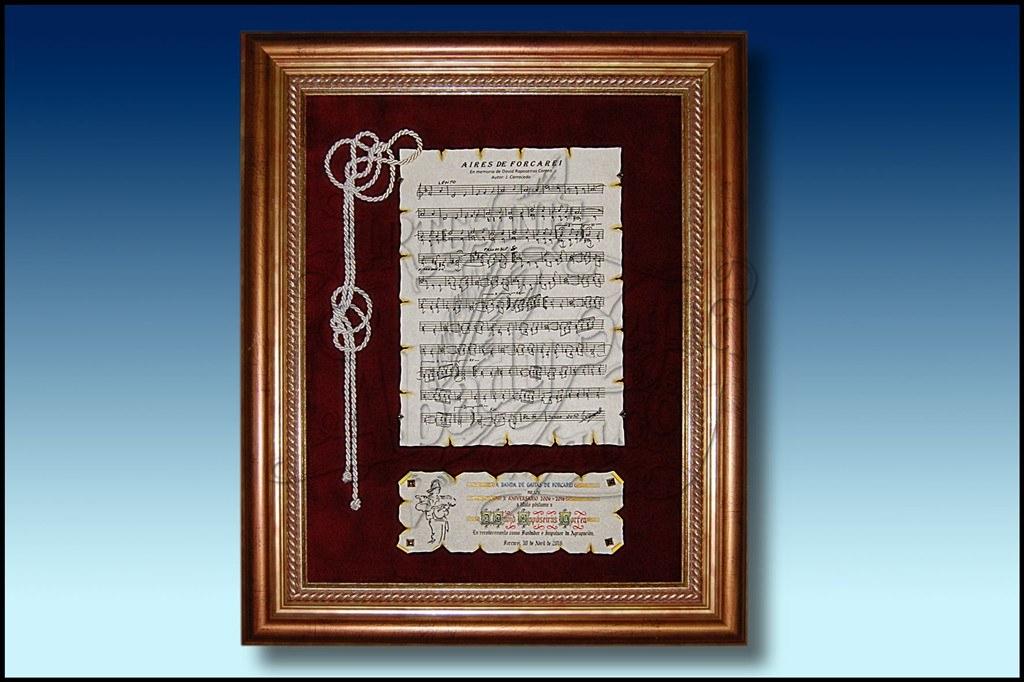 AIRES DE FORCAREI
En memoria de David Raposeiras Correa
Autor: J. Carracedo
LENTO
A BANDA DE GAITAS DE FORCAREI
X ANIVERSARIO 2006 - 2016
a título póstumo a
David Raposeiras Correa
En recoñecemento como Fundador e Impulsor da Agrupación.
Forcarei, 30 de Abril de 2016